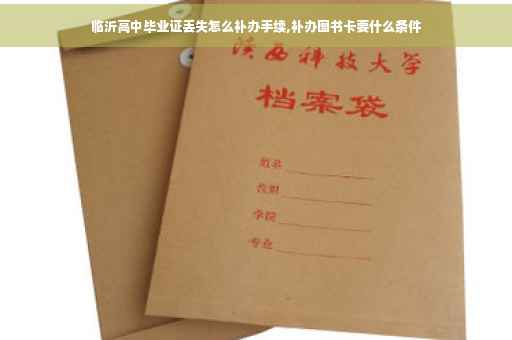 临沂高中毕业证丢失怎么补办手续,补办图书卡要什么条件
陕西科技大学
档案袋
姓名
学院
专业